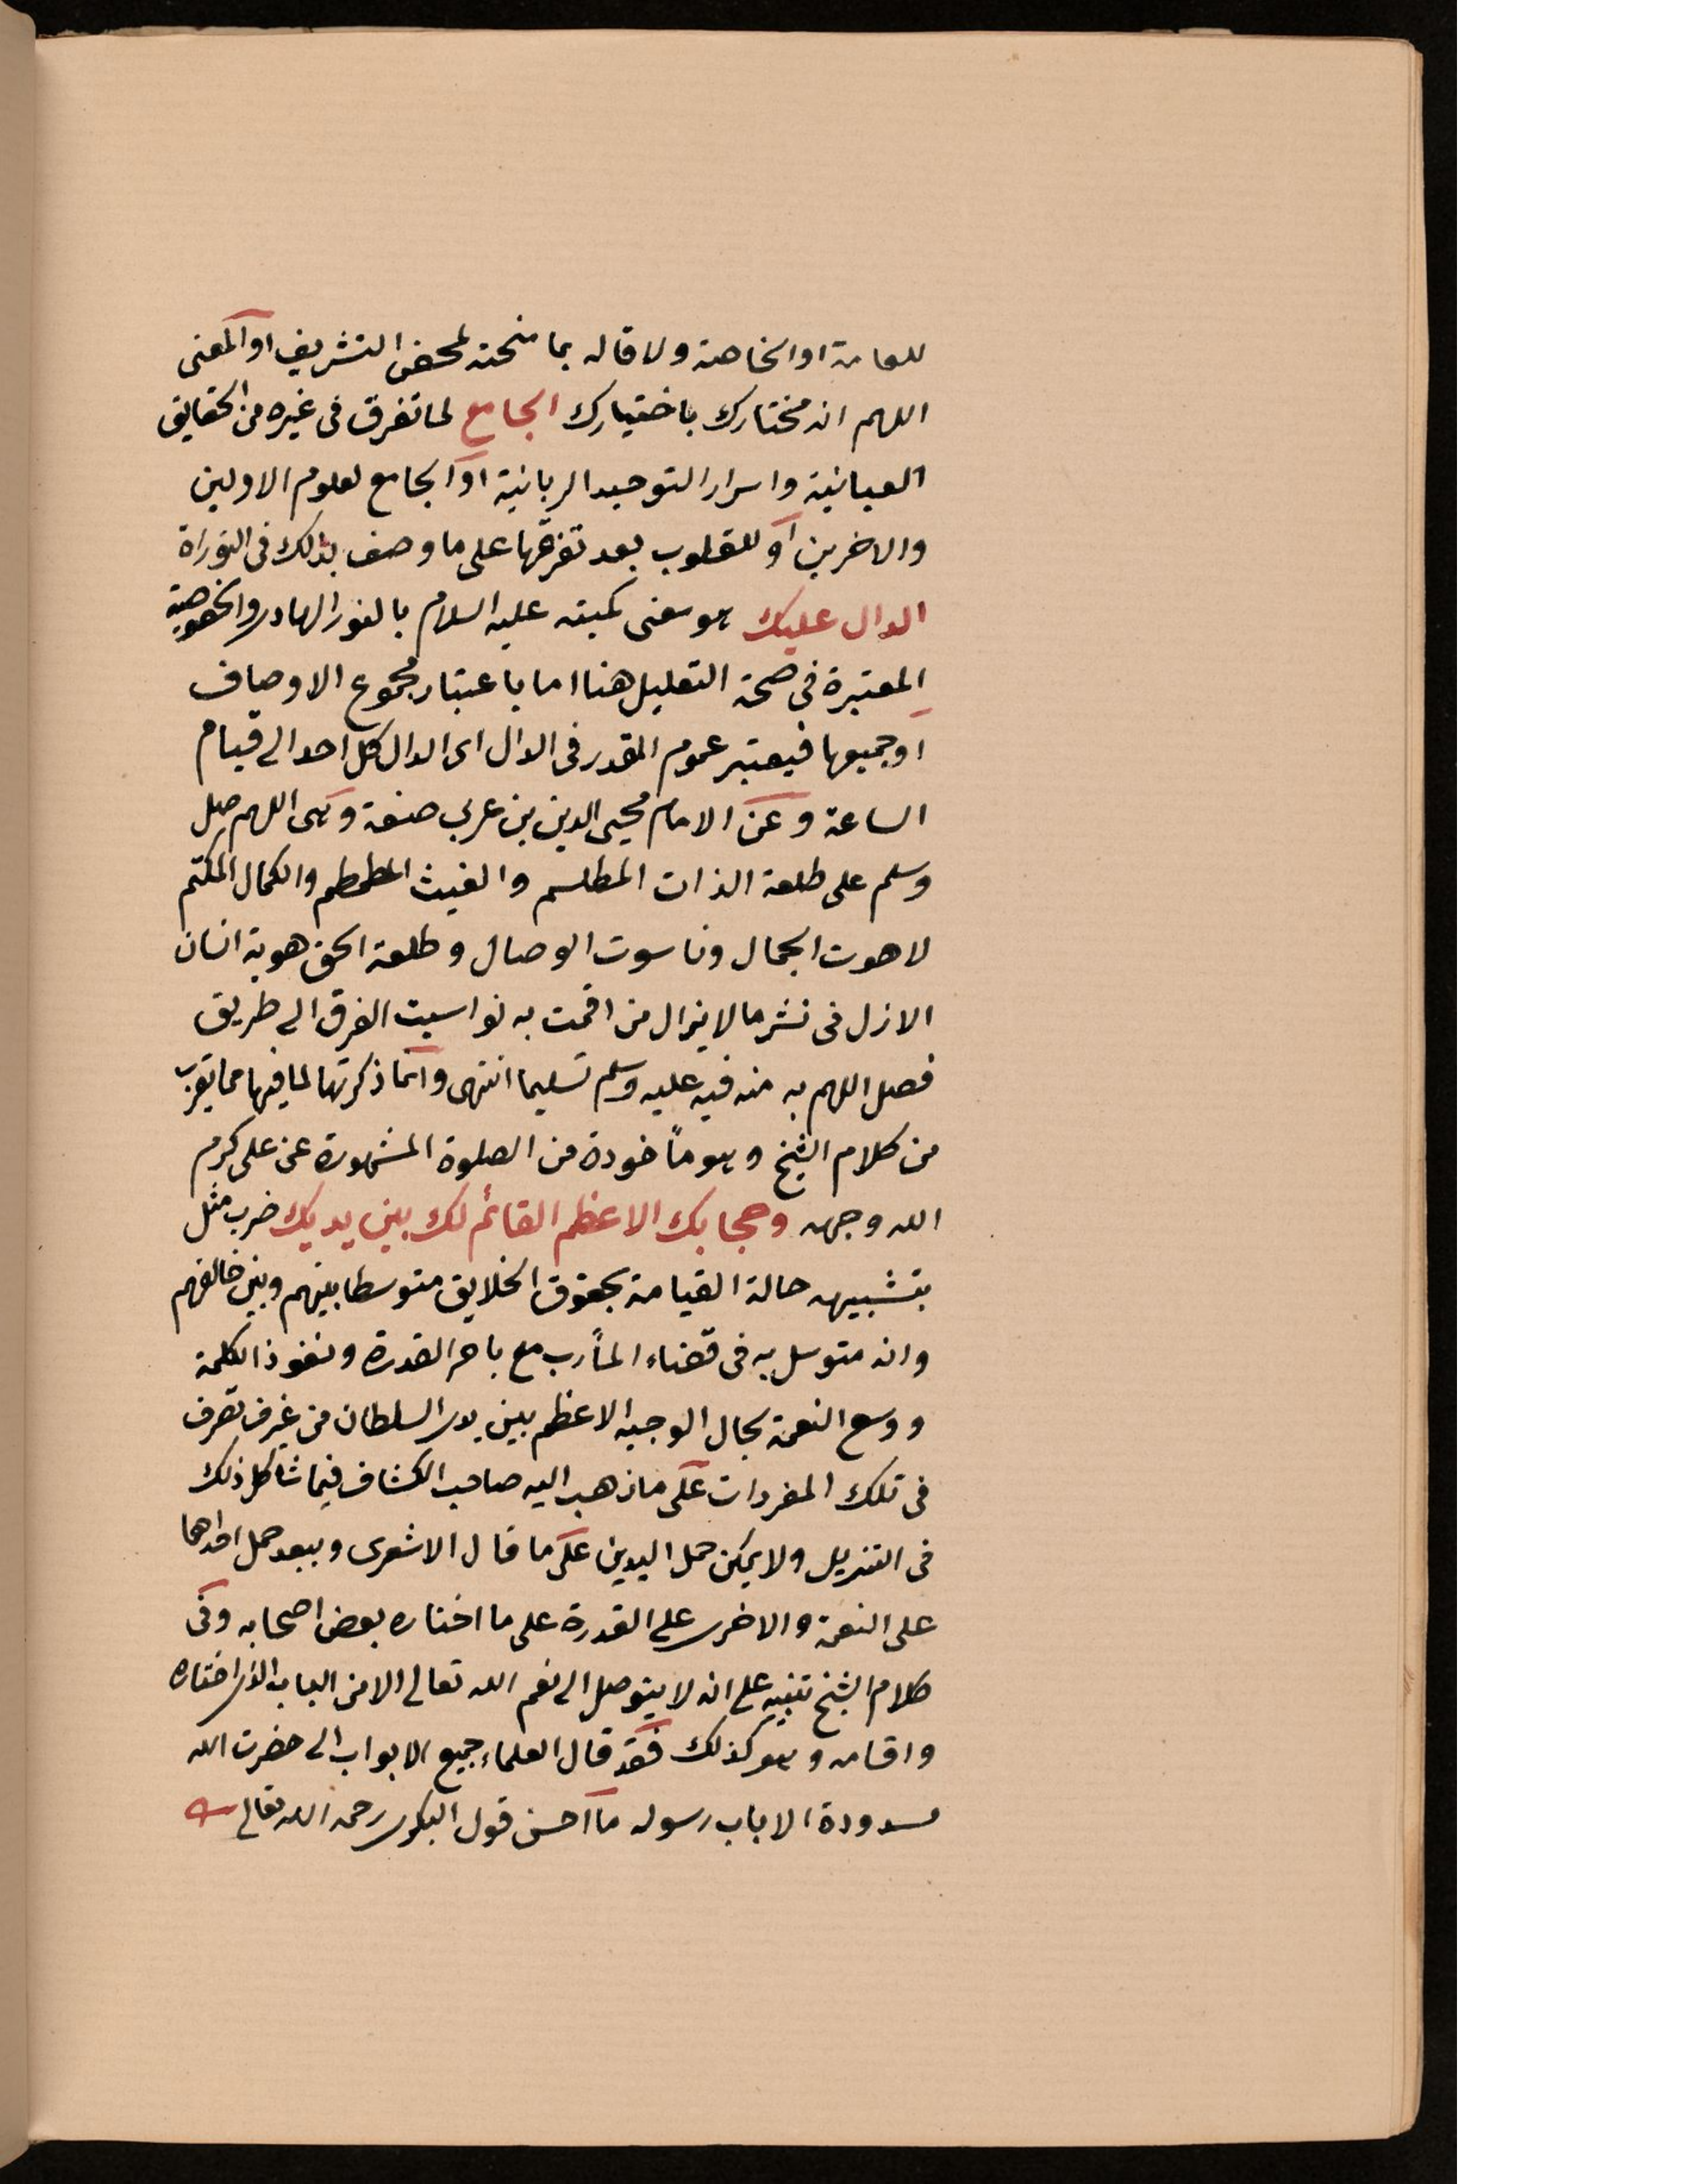 للعامة او الخاصة ولا قاله بما منحته لمحض التشريف او المعنى
اللهم انه مختارك باختيارك الجامع لما تفرق فى غيره من الحقايق
العيانية واسرار التوحيد الربانية او الجامع لعلوم الاولين
والاخرين او للقلوب بعد تفرقها على ما وصف بذلك فى التوراة
الدال عليك هو معنى تسميته عليه السلام بالنور الهادى والخصوصية
المعتبرة فى صحة التعليل هنا اما باعتبار مجموع الاوصاف
او جميعها فيعتبر عموم المقدر فى الدال اى الدال كل احد الى قيام
الساعة وعن الامام محيى الدين بن عربي صنعة وهى اللهم صل
وسلم على طلعة الذات المطلسم والغيث المطمطم والكمال المكتم
لاهوت الجمال وناسوت الوصال وطلعة الحق هوية انسان
الازل فى نشر ما لا يزال من اقمت به نواسيت الفرق الى طريق
فصل اللهم به منه فيه عليه وسلم تسليما انتهى وانما ذكرتها لما فيها مما يقرب
من كلام الشيخ وهو مأخوذة من الصلوة المشهورة عن على كرم
الله وجهه وحجابك الاعظم القائم لك بين يديك ضرب مثل
بتشبيهه حالة القيامة بحقوق الخلايق متوسطا بينهم وبين خالقهم
وانه متوسل به فى قضاء المأرب مع باهر القدرة ونفوذ الكلمة
ووسع النعمة بحال الوجيه الاعظم بين يدى السلطان من غير تصرف
فى تلك المفردات على ما ذهب اليه صاحب الكشاف فيما شاكل ذلك
فى التنزيل ولا يمكن حمل اليدين على ما قال الاشعرى ويبعد حمل احداهما
على النعمة والاخرى على القدرة على ما اختاره بعض اصحابه وفى
كلام الشيخ تنبيه على انه لا يتوصل الى نعم الله تعالى الا من الباب الذى اختاره
واقامه وهو كذلك فقد قال العلماء جميع الابواب الى حضرت الله
مسدودة الا باب رسوله ما احسن قول البكرى رحمه الله تعالى